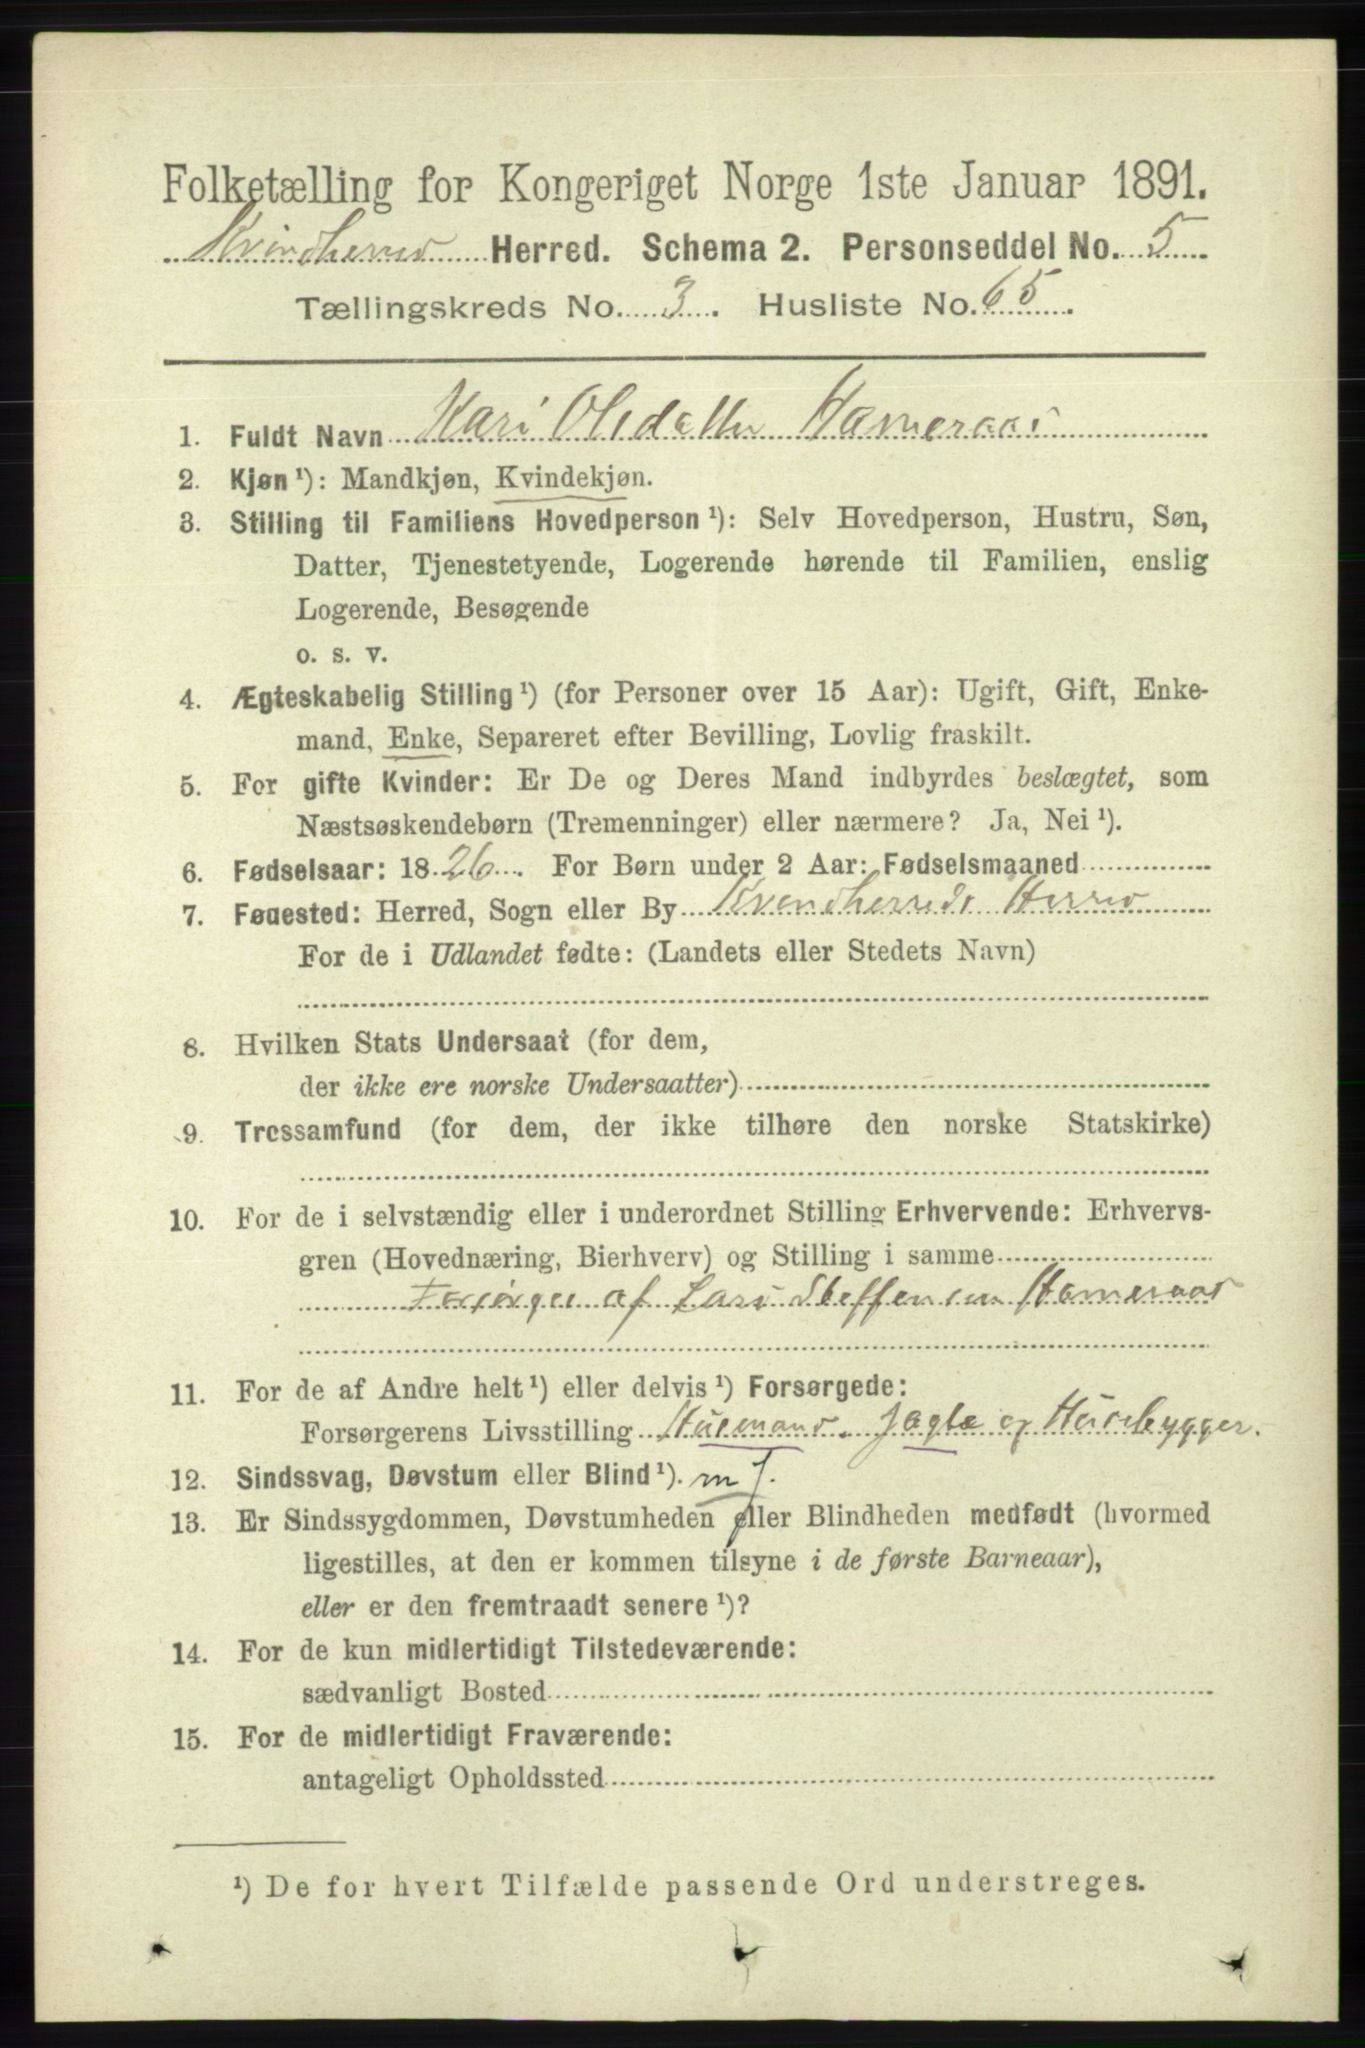 Folketælling for Kongeriget Norge 1ste Januar 1891.
Kvindherred Herred. Schema 2. Personseddel No. 5
Tællingskreds No. 3. Husliste No. 65.
1. Fuldt Navn Kari Olsdatter Hameraas
2. Kjøn ¹): Mandkjøn, Kvindekjøn.
3. Stilling til Familiens Hovedperson ¹): Selv Hovedperson, Hustru, Søn,
Datter, Tjenestetyende, Logerende hørende til Familien, enslig
Logerende, Besøgende
o. s. v.
4. Ægteskabelig Stilling ¹) (for Personer over 15 Aar): Ugift, Gift, Enke-
mand, Enke, Separeret efter Bevilling, Lovlig fraskilt.
5. For gifte Kvinder: Er De og Deres Mand indbyrdes beslægtet, som
Næstsøskendebørn (Tremenninger) eller nærmere? Ja, Nei ¹).
6. Fødselsaar: 1826. For Børn under 2 Aar: Fødselsmaaned
7. Fødested: Herred, Sogn eller By Kvindherreds Herred
For de i Udlandet fødte: (Landets eller Stedets Navn)
8. Hvilken Stats Undersaat (for dem,
der ikke ere norske Undersaatter)
9. Trossamfund (for dem, der ikke tilhøre den norske Statskirke)
10. For de i selvstændig eller i underordnet Stilling Erhvervende: Erhvervs-
gren (Hovednæring, Bierhverv) og Stilling i samme
Forsørges af Lars Steffensen Hameraas
11. For de af Andre helt ¹) eller delvis ¹) Forsørgede:
Forsørgerens Livsstilling Husmand. Jagte og Husebygger.
12. Sindssvag, Døvstum eller Blind ¹).
13. Er Sindssygdommen, Døvstumheden eller Blindheden medfødt (hvormed
ligestilles, at den er kommen tilsyne i de første Barneaar),
eller er den fremtraadt senere ¹)?
14. For de kun midlertidigt Tilstedeværende:
sædvanligt Bosted
15. For de midlertidigt Fraværende:
antageligt Opholdssted
¹) De for hvert Tilfælde passende Ord understreges.